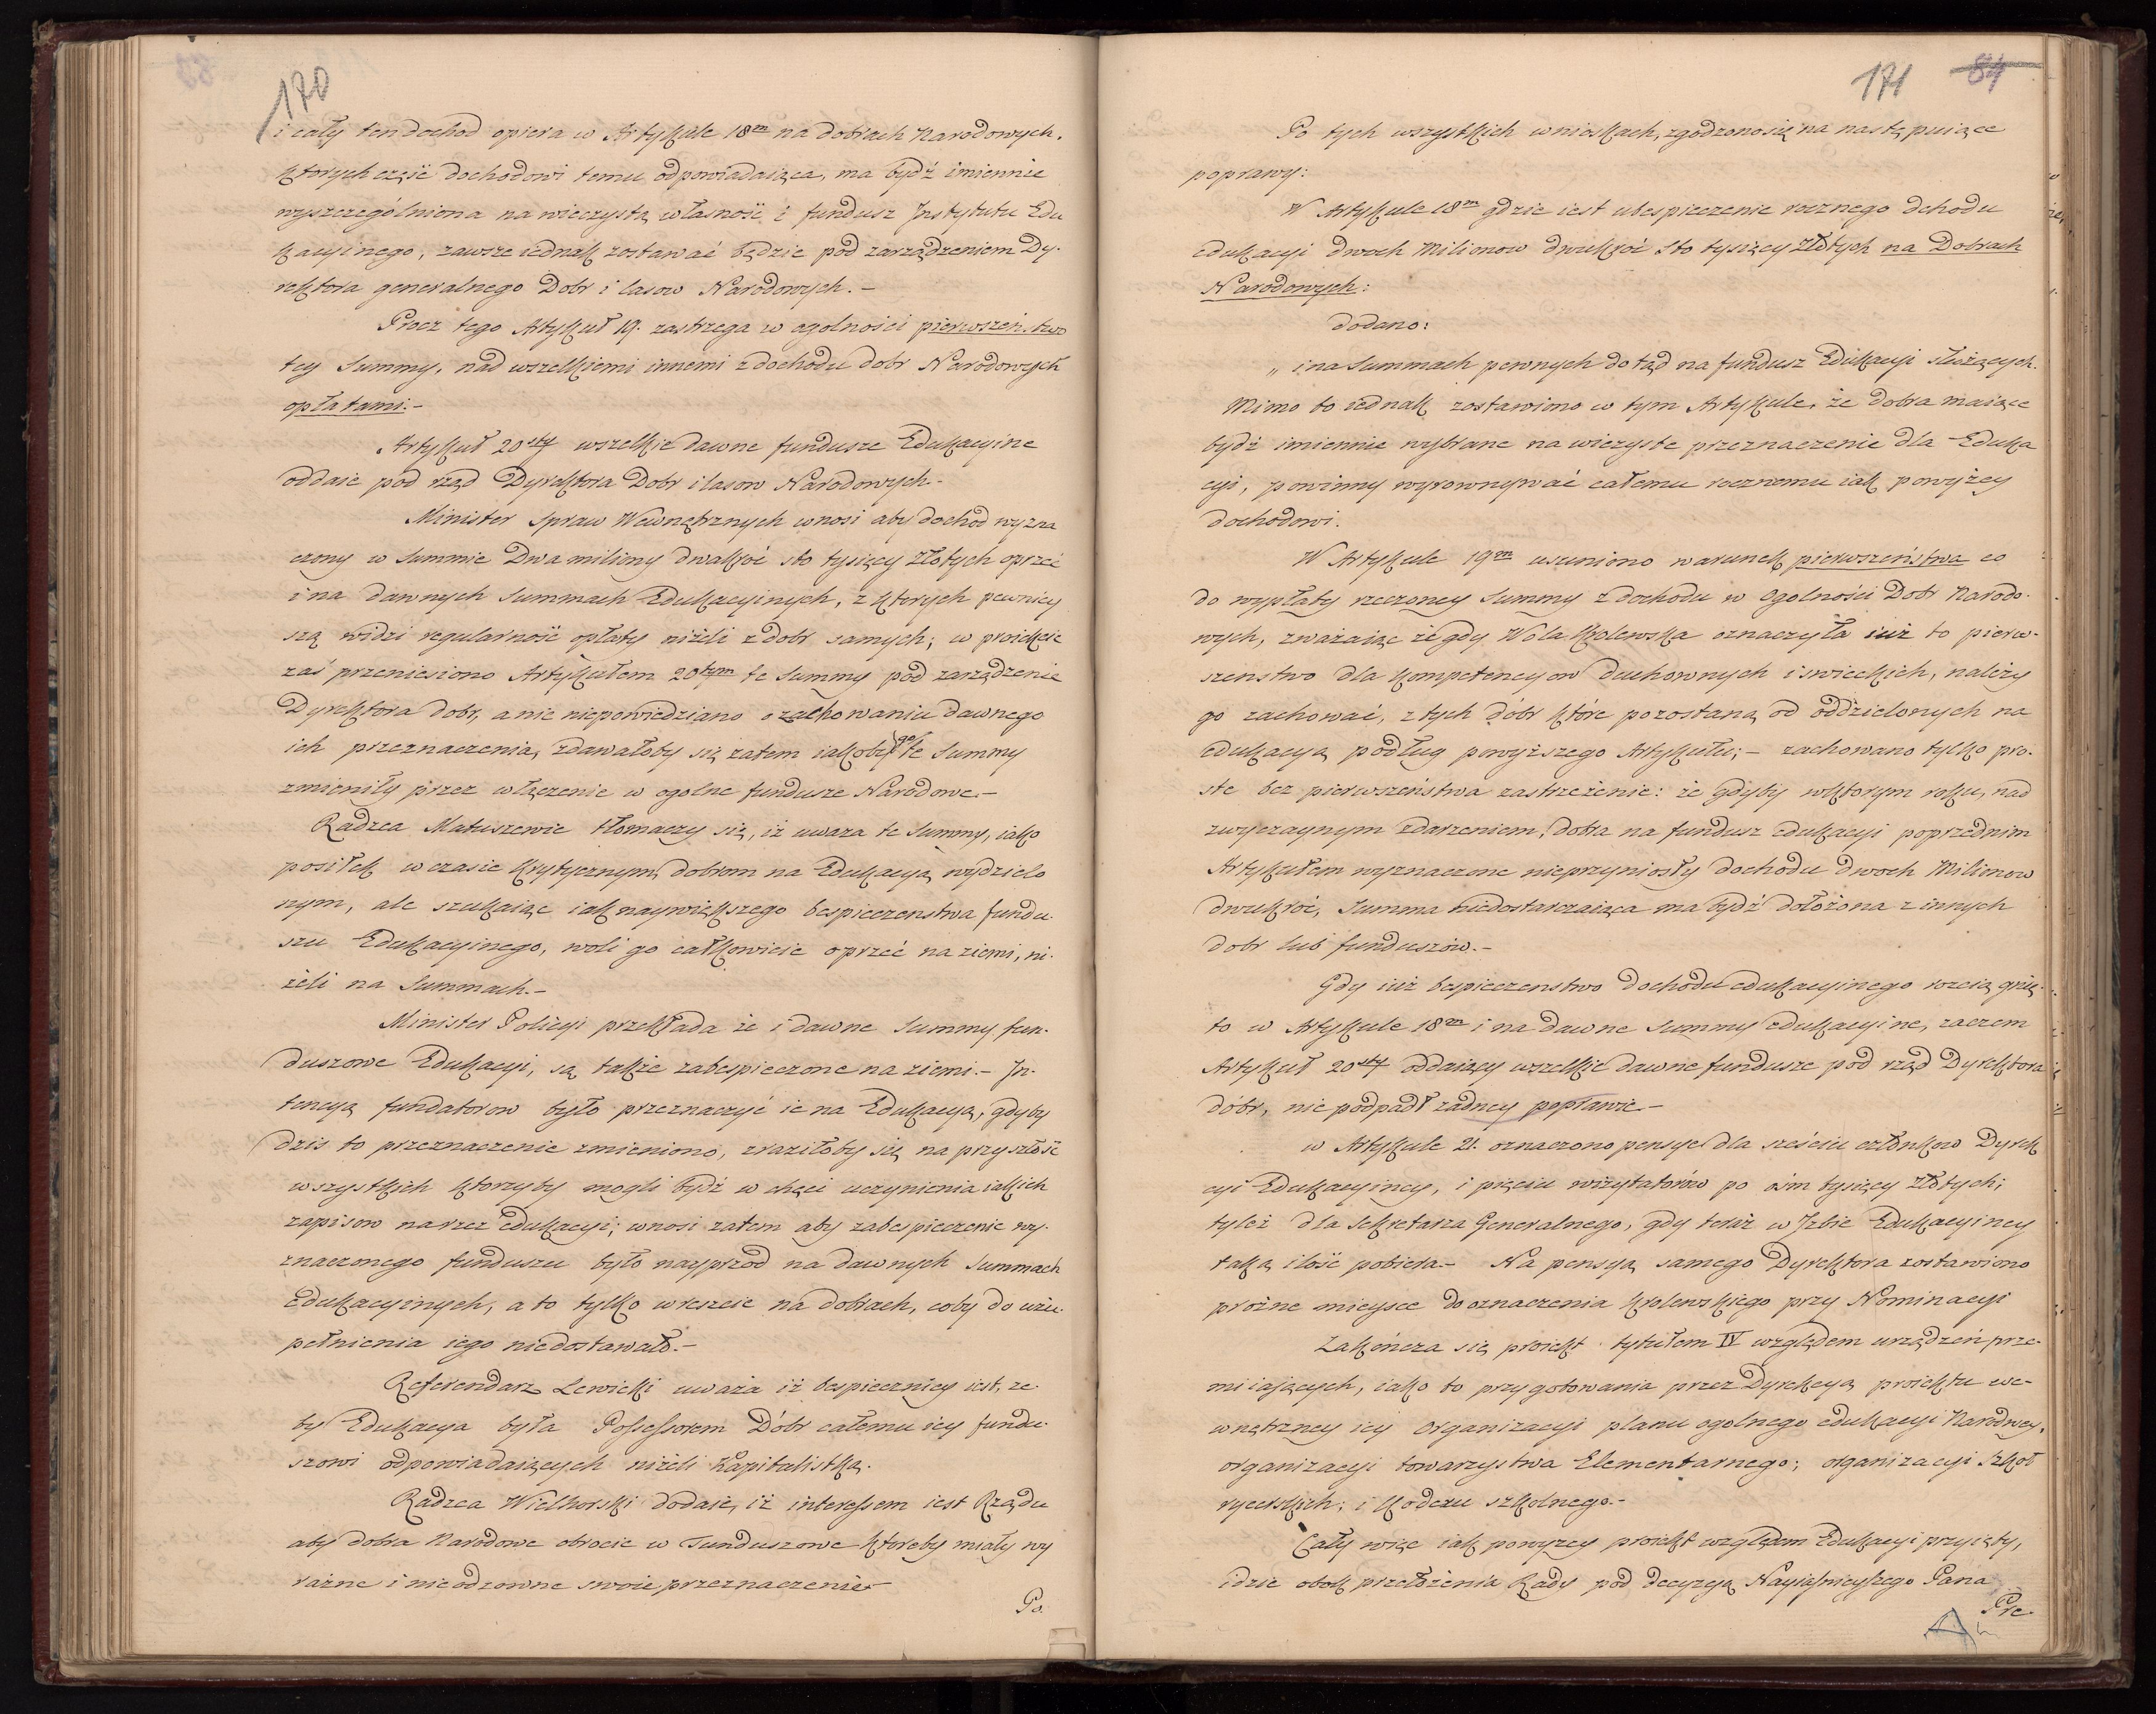 170
i cały ten dochod opiera w Artykule 18m na dobrach Narodowych.
ktorych część dochodowi temu odpowiadaiąca, ma bydź imiennie
wyszczególniona na wieczystą własność i fundusz Instytutu Edu
kacyinego, zawsze iednak zostawać będzie pod zarządzeniem Dy-
rektora generalnego Dobr i lasow Narodowych.-
Procz tego Artykuł 19. zastrzega w ogolności pierwszeństwo
tey Summy, nad wszelkiemi innemi z dochodu dobr Narodowych
opłatami.-
Artykuł 20sty wszelkie dawne fundusze Edukacyine
oddaie pod rząd Dyrektora Dobr i lasow Narodowych.-
Minister Spraw Wewnętrznych wnosi aby dochod wyzna
czony w Summie Dwa miliony dwakroć sto tysięcy Złotych oprzeć
i na dawnych Summach Edukacyinych, z ktorych pewniey
szą widzi regularność opłaty niżeli z dobr samych; w proiekcie
zaś przeniesiono Artykułem 20tym te Summy pod zarządzenie
Dyrektora dobr, a nic niepowiedziano o zachowaniu dawnego
ich przeznaczenia, zdawałoby się zatem iakoby go te Summy
zmieniły przez włączenie w ogolne fundusze Narodowe.-
Radzca Matuszewic tłomaczy się, iż uwaza te Summy, iako
posiłek w czasie krytycznym dobrom na Edukacyą wydzielo
nym, ale szukaiąc iak naywiększego bespieczenstwa fundu-
szu Edukacyinego, woli go całkowicie oprzeć na ziemi, ni-
żeli na Summach.-
Minister Policyi przekłada że i dawne Summy fun-
duszowe Edukacyi, są także zabespieczone na ziemi.- In-
tencyą fundatorow było przeznaczyć ie na Edukacyą, gdyby
dzis to przeznaczenie zmieniono, zraziłoby się na przyszłość
wszystkich ktorzyby mogli bydź w chęci uczynienia iakich
zapisow na rzecz edukacyi; wnosi zatem aby zabespieczenie wy-
znaczonego funduszu było nayprzod na dawnych Summach
Edukacyinych, a to tylko wreszcie na dobrach, coby do uzu-
pełnienia iego niedostawało.-
Referendarz Lewicki uważa iż bespieczniey iest, ze-
by Edukacya była Possessorem Dóbr całemu iey fundu-
szowi odpowiadaiących niżeli Kapitalistką.
Radzca Wielhorski dodaie, iż interessem iest Rządu
aby dobra Narodowe obrocic w Funduszowe ktoreby miały wy
raźne i nieodzowne swoie przeznaczenie.-
Po.
171 84
Po tych wszystkich wnioskach, zgodzono się na następuiące
poprawy:
W Artykule 18m gdzie iest ubespieczenie rocznego dchodu
edukacyi dwoch Milionow dwukroć sto tysięcy Złotych na Dobrach
Narodowych:
dodano:
„ i na Summach pewnych dotąd na fundusz Edukacyi służących.
Mimo to iednak zostawiono w tym Artykule, że dobra maiące
bydź imiennie wybrane na wieczyste przeznaczenie dla Eduka
cyi, powinny wyrownywać całemu rocznemu iak powyżey
dochodowi.
W Artykule 19m usuniono warunek pierwszeństwa co
do wypłaty rzeczoney Summy z dochodu w Ogolności Dobr Narodo-
wych, zważaiąc że gdy Wola Krolewska oznaczyła iuż to pierw-
szenstwo dla kompetencyow duchownych i swieckich, należy
go zachować, z tych dóbr które pozostaną od oddzielonych na
edukacyą podług powyższego Artykułu;- zachowano tylko pro-
ste bez pierwszeństwa zastrzeżenie: że gdyby wktorym roku, nad
zwyczaynym zdarzeniem, dobra na fundusz edukacyi poprzednim
Artykułem wyznaczone nieprzyniosły dochodu dwoch Milionow
dwukroć, Summa niedostarczaiąca ma bydź dołożona z innych
dobr lub funduszów.-
Gdy iuż bespieczenstwo dochodu edukacyinego rozciągnię-
to w Artykule 18m i na dawne Summy edukacyine, zaczem
Artykuł 20sty oddaiący wszelkie dawne fundusze pod rząd Dyrektora
dóbr, nie podpadł żadney poprawie.-
w Artykule 21. oznaczono pensye dla sześciu członkow Dyrek
cyi Edukacyiney, i pięciu wizytatorów po ośm tysięcy złotych;
tyleż dla Sekretarza Generalnego, gdy teraz w Izbie Edukacyiney
taką ilość pobiera.- Na pensyą samego Dyrektora zostawiono
prożne mieysce do oznaczenia krolewskiego przy Nominacyi
Zakończa się proiekt tytułem IV względem urządzeń prze-
miiaiących, iako to przygotowania przez Dyrekcyą proiektu we-
wnętrzney iey organizacyi planu ogolnego edukacyi Narodwey,
organizacyi towarzystwa Elementarnego; organizacyi Szkoł
rycerskich; i kodexu szkolnego.-
Cały więc iak powyzey proiekt względem Edukacyi przyięty,
idzie obok przełożenia Rady pod decyzyą Nayiasnieyszego Pana
Pre.